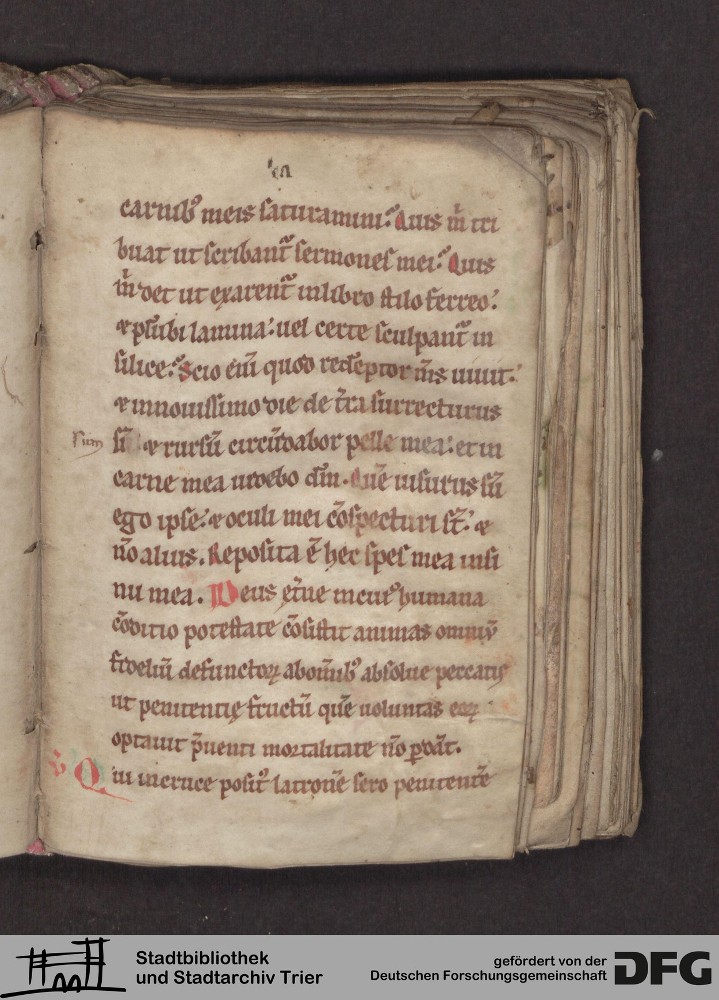 carnib⁹ meis saturamini. Quis m̄ tri
buat ut scribant᷑ sermones mei. Quis
m̄ det ut exarent᷑ in libro stilo ferreo.
⁊ plūbi lamina. uel certe sculpant᷑ in
silice. Scio eni᷑ quod redēptor m̄s uiuit.
⁊ in nouissimo die de t̄ra surrecturus
sū ⁊ rursū circūdabor pelle mea. et in
carne mea uidebo dm̄. Quē uisurus sū
ego ipse. ⁊ oculi mei cōspecturi st̄. ⁊
nō alius. Reposita ē hec spes mea in si
nu mea. Deus et̄ne in cui⁹ humana
cōditio potestate cōsistit animas omniū
fidelíū defunctoꝝ ab om̄ib⁹ absolue peccatis
ut penitentię fructū quē uoluntas eoꝝ
optauit p̄uenti mortalitate nō ꝑdāt.
Qui in cruce posit⁹ latronē sero penitentē
sum
Stadtbibliothek
und Stadtarchiv Trier
gefördert von der
Deutschen Forschungsgemeinschaft
DFG